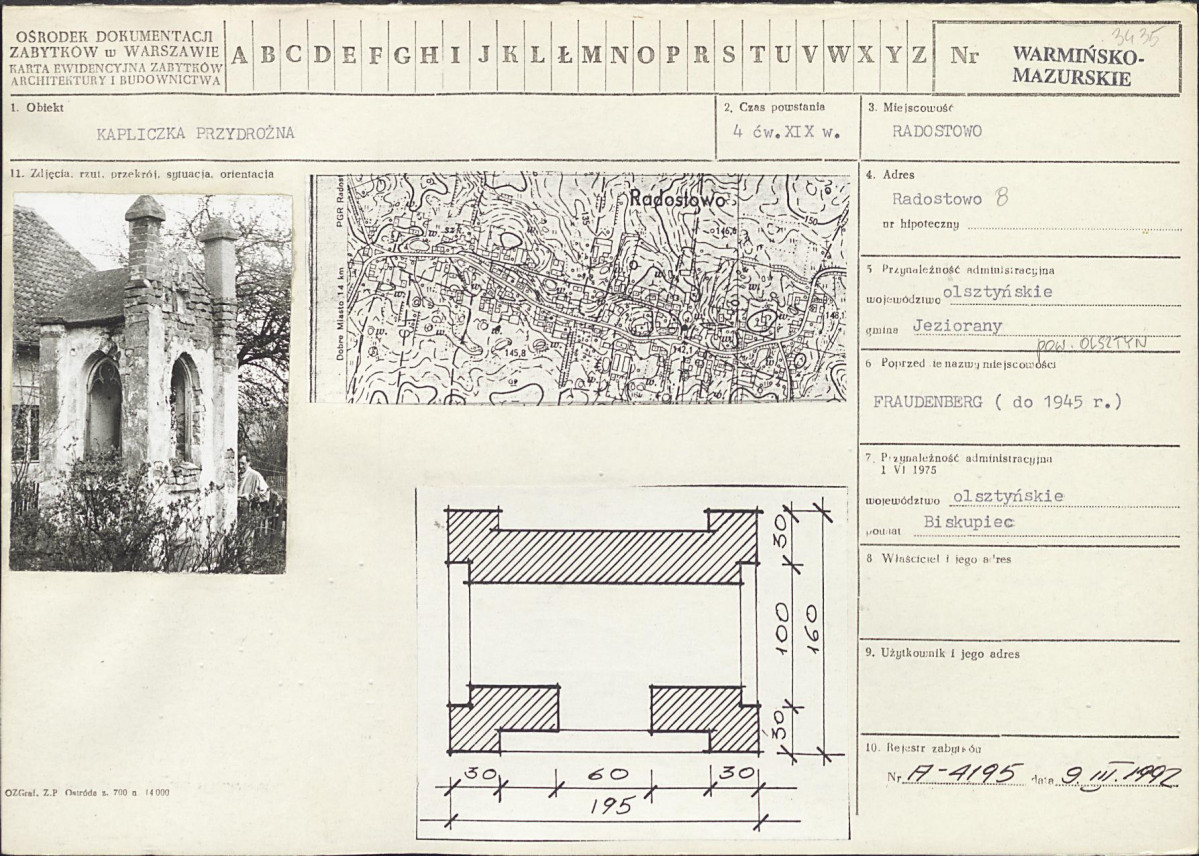 OŚRODEK DOKUMENTACJI
ZABYTKÓW w WARSZAWIE
KARTA EWIDENCYJNA ZABYTKÓW
ARCHITEKTURY I BUDOWNICTWA
A B C D E F G H I J K L Ł M N O P R S T U V W X Y Z
Nr
3435
WARMIŃSKO-
MAZURSKIE
1. Obiekt
KAPLICZKA PRZYDROŻNA
2. Czas powstania
4 ćw.XIX w.
3. Miejscowość
RADOSTOWO
11. Zdjęcia, rzut, przekrój, sytuacja, orientacja
PGR Radost
Dobre Miasto 14 km
Radostowo
150
146,8
145,8
147,1
148,1
4. Adres
Radostowo 8
nr hipoteczny
5 Przynależność administracyjna
województwo olsztyńskie
gmina Jeziorany
pow. OLSZTYN
6 Poprzed ie nazwy miejscowości
FRAUDENBERG ( do 1945 r.)
7. Przynależność administracyjna
1 VI 1975
województwo olsztyńskie
powiat Biskupiec
8 Właściciel i jego adres
9. Użytkownik i jego adres
10. Rejestr zabytków
Nr A-4195 data 9.III.1992
30
100
160
30
30 60 30
195
OZGraf. Z.P Ostróda z. 700 n 14 000